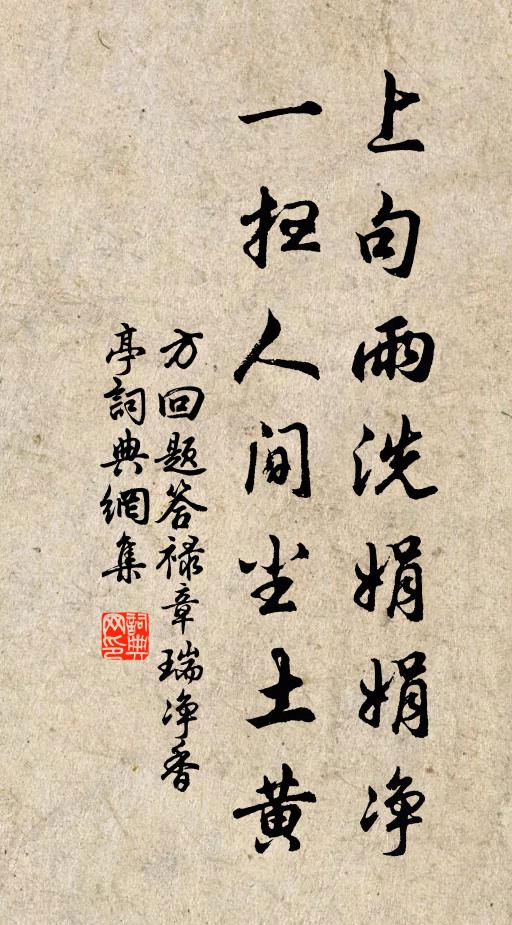 上句雨洗娟娟净
一扫人间尘土黄
方回题答禄章瑞净香
亭詞典網集
詞典
网印